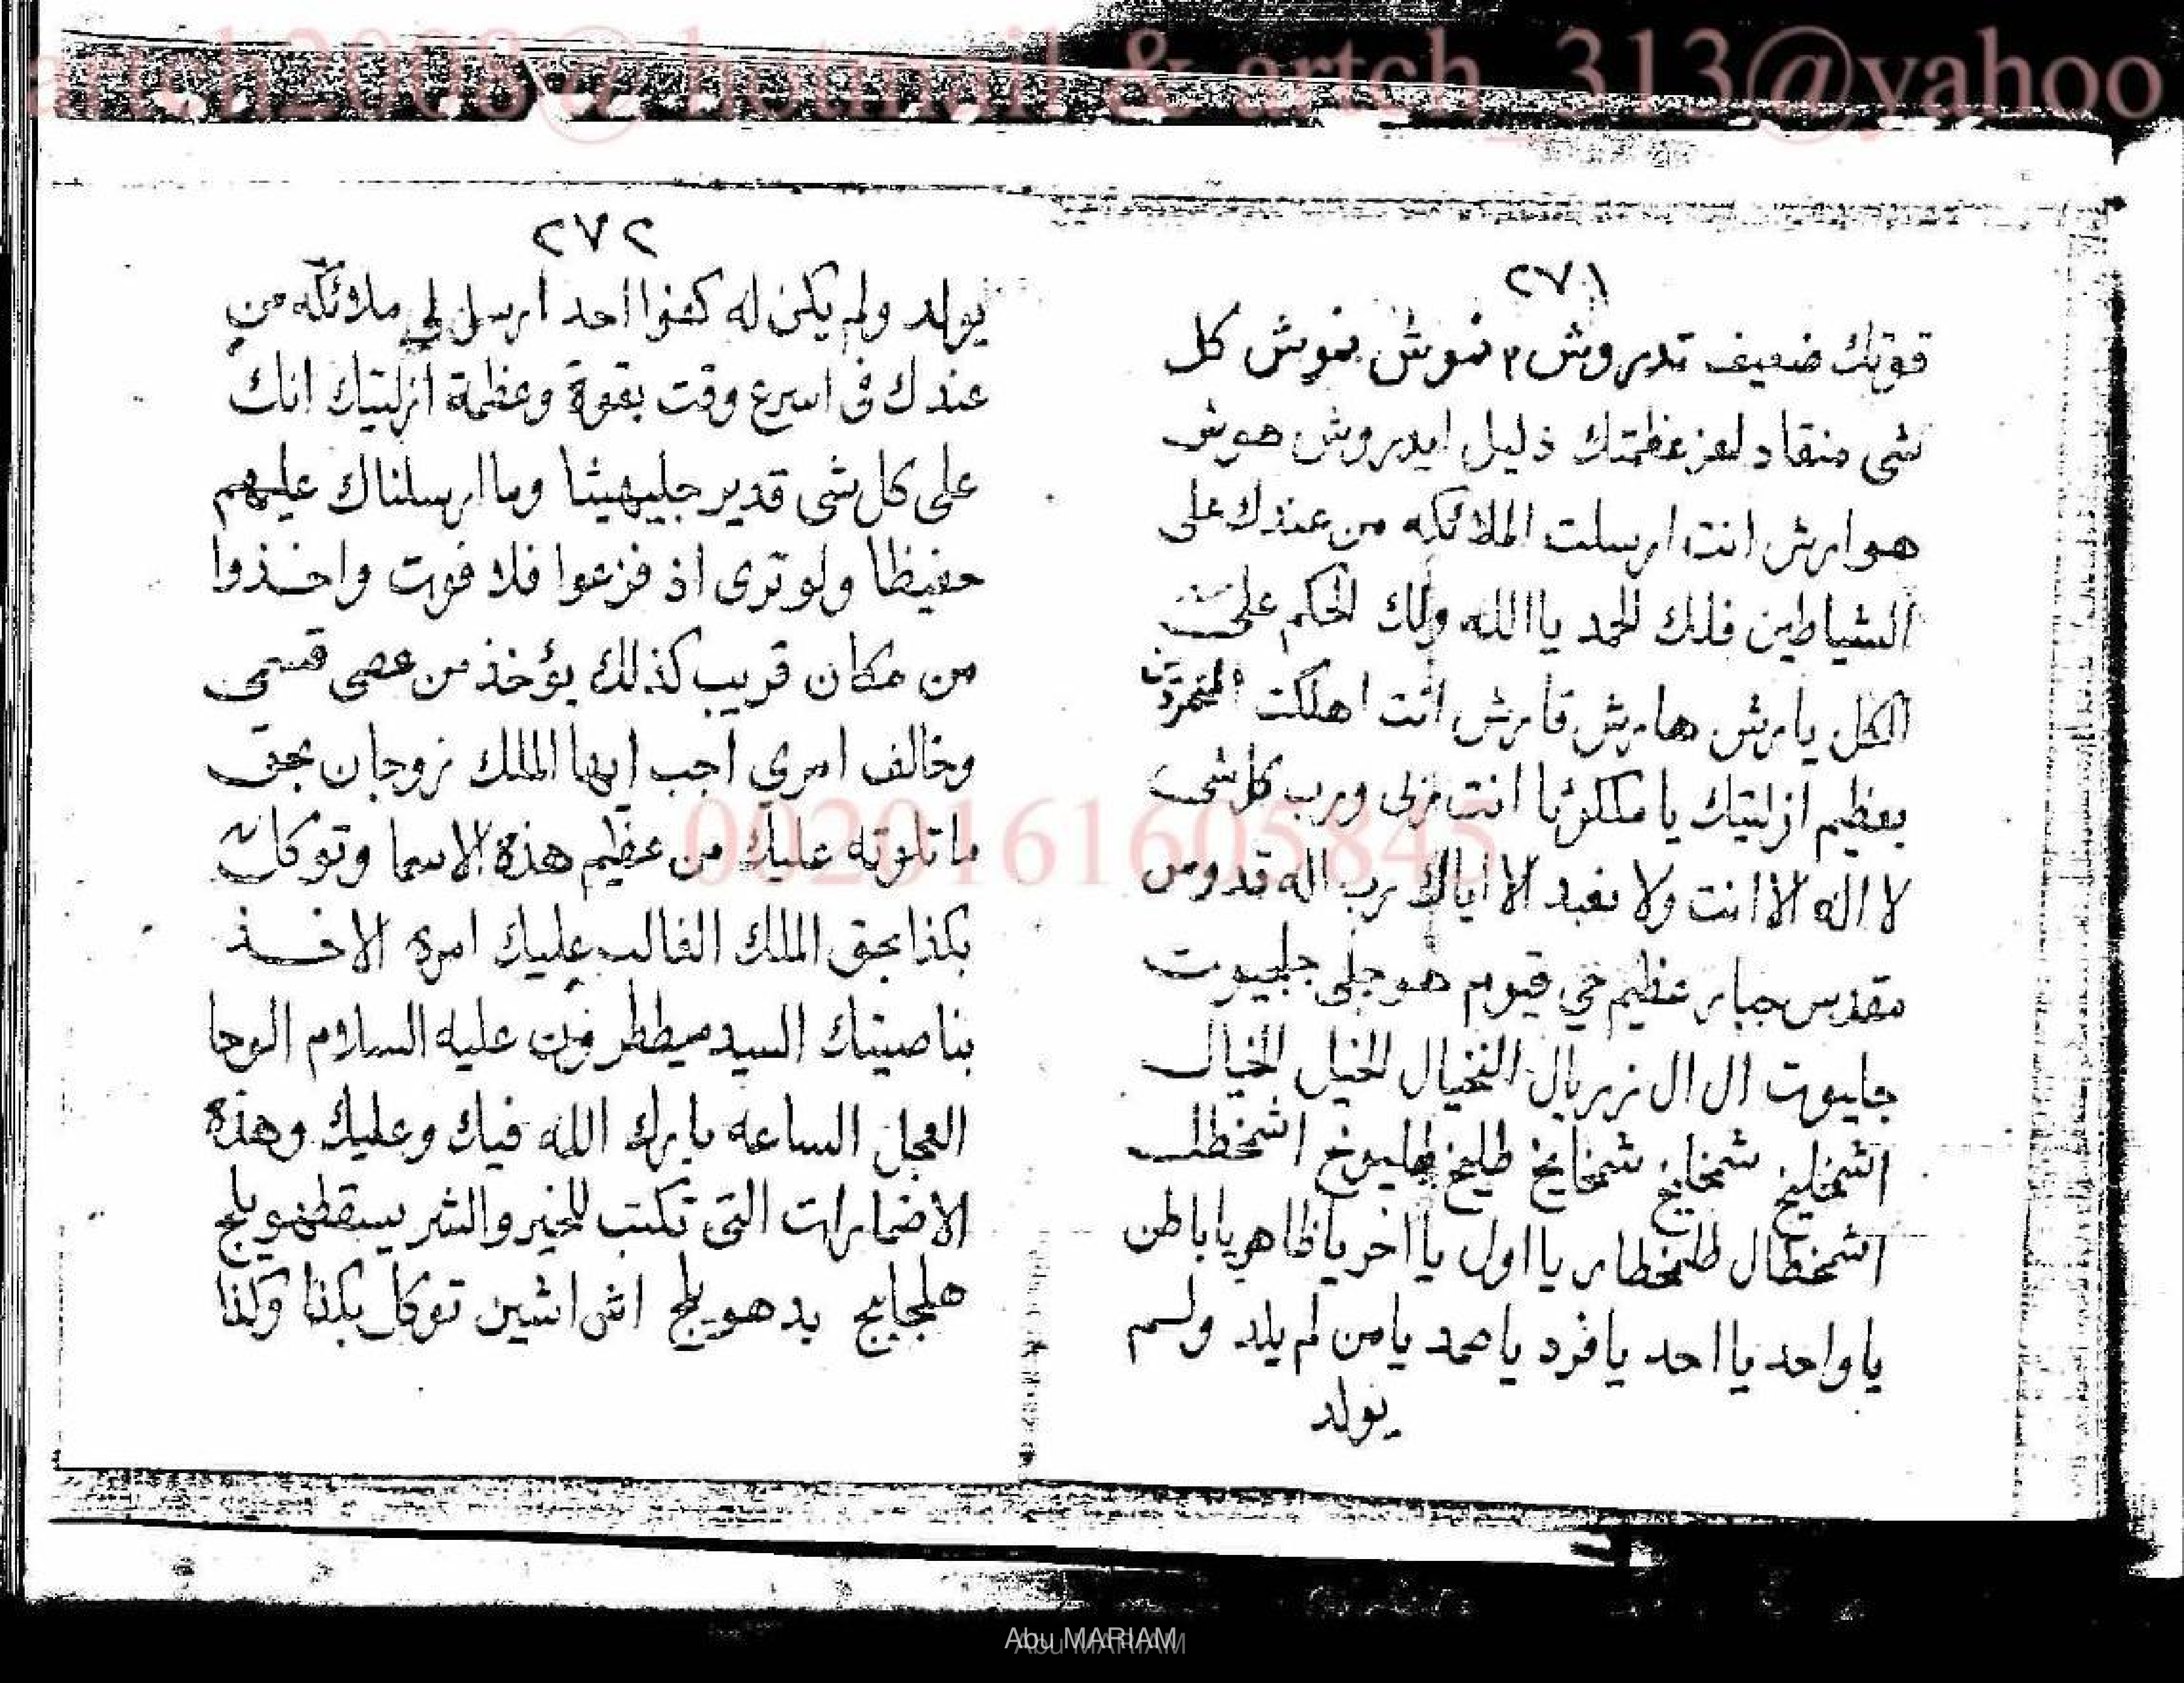 artch2008@hotmail & artch_313@yahoo
٢٧١
قوتك ضعيف تدروش ٢ نموش نموش كل
شى منقاد لعز عظمتك ذليل ايدروش هوش
هوارش انت ارسلت الملائكه من عندك على
الشياطين فلك الحمد يا الله ولك الحكم على
الكل يارش هارش قارش انت اهلكت المتمردين
بعظيم ازليتيك يا انت ربى ورب كل شى
لا اله الا انت ولا نعبد الا اياك رب اله قدوس
مقدس جبار عظيم حي قيوم هو جلى جلجيوت
جليوت ال ال زريال النخيال الخيل الخيال
اشمخليخ شمخايخ شمخايخ طليخ طليوخ اشخطلب
اشمخطال طلخطار يا اول يا اخر يا ظاهر يا باطن
يا واحد يا احد يا فرد يا صمد يا من لم يلد ولم
يولد
٢٧٢
يولد ولم يكن له كفوا احد ارسل لى ملائكه من
عندك فى اسرع وقت بقوة وعظمة ازليتيك انك
على كل شى قدير جليهيثا وما ارسلناك عليهم
حفيظا ولو ترى اذ فزعوا فلا فوت واخذوا
من مكان قريب كذلك يؤخذ من عصى قسمى
وخالف امري اجب ايها الملك زوجان بحق
ما تلوته عليك من عظيم هذه الاسما وتوكل
بكذا بحق الملك الغالب عليك امره الاخذ
بناصيتك السيد ميططرون عليه السلام الوحا
العجل الساعه بارك الله فيك وعليك وهذه
الاضمارات التى تكتب للخير والشر
هلجايج بدهويلج اش اشين توكل بكذا وكذا
0020161605845
Abu MARIAM